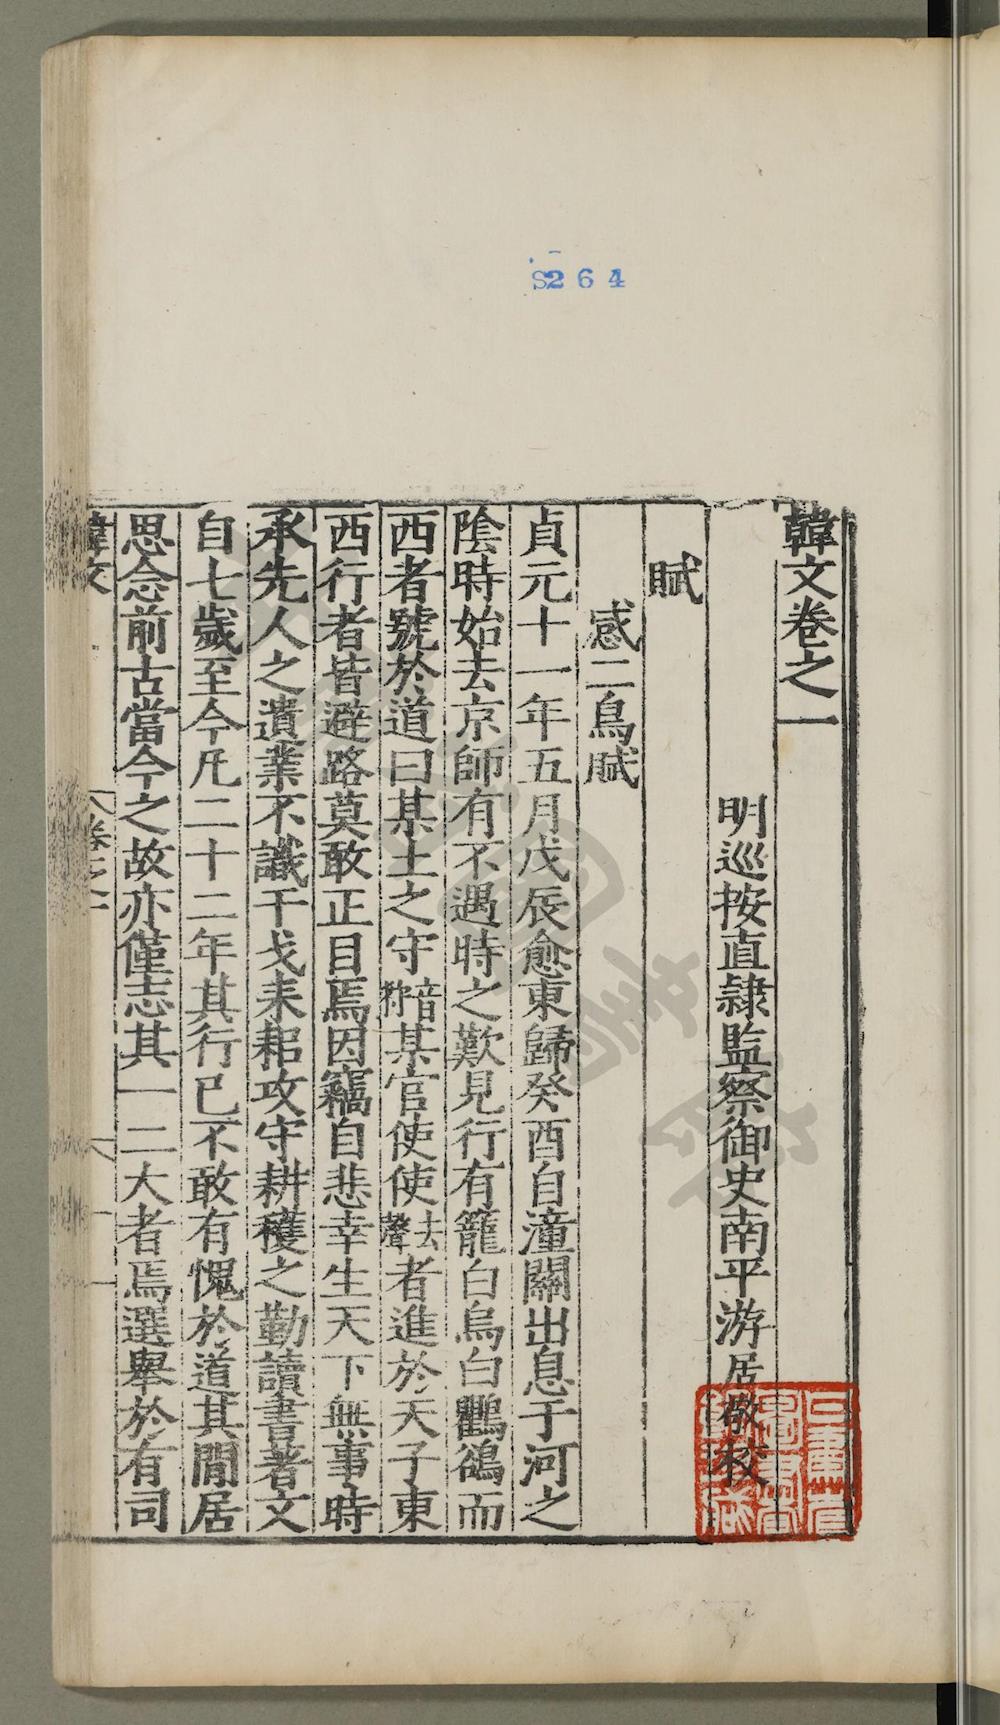 S264
韓文卷之一
明巡按直隸監察御史南平游居敬校
賦
感二鳥賦
貞元十一年五月戊辰愈東歸癸酉自潼關出息于河之
陰時始去京師有不遇時之歎見行有籠白烏白鸜鵒而
西者號於道曰某土之守音狩某官使使去聲者進於天子東
西行者皆避路莫敢正目焉因竊自悲幸生天下無事時
承先人之遺業不識干戈耒耜攻守耕穫之勤讀書著文
自七歲至今凡二十二年其行已不敢有愧於道其閒居
思念前古當今之故亦僅志其一二大者焉選舉於有司
韓文
卷之一